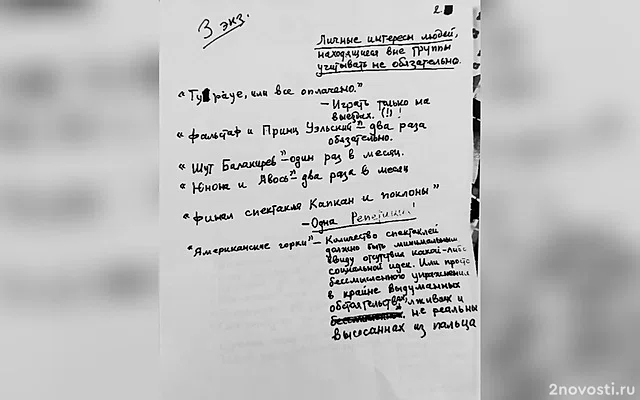 3 экз.
2
Личные интересы людей,
находящиеся вне группы
учитывать не обязательно.
"Ту рауе, или все оплачено."
— Играть только на
выездах. (!)!
"Фальстаф и Принц Уэльский" — два раза
обязательно.
"Шут Балакирев" — один раз в месяц.
"Юнона и Авось" — два раза в месяц
"Финал спектакля Капкан и поклоны"
— Одна Репетиция!
"Американские горки" — Количество спектаклей
должно быть минимальным
ввиду отсутствия какой-либо
социальной идеи. Или просто
бессмысленного упражнения
в крайне выдуманных
обстоятельствах, лживых и
не реальных
высосаннах из пальца
2novosti.ru